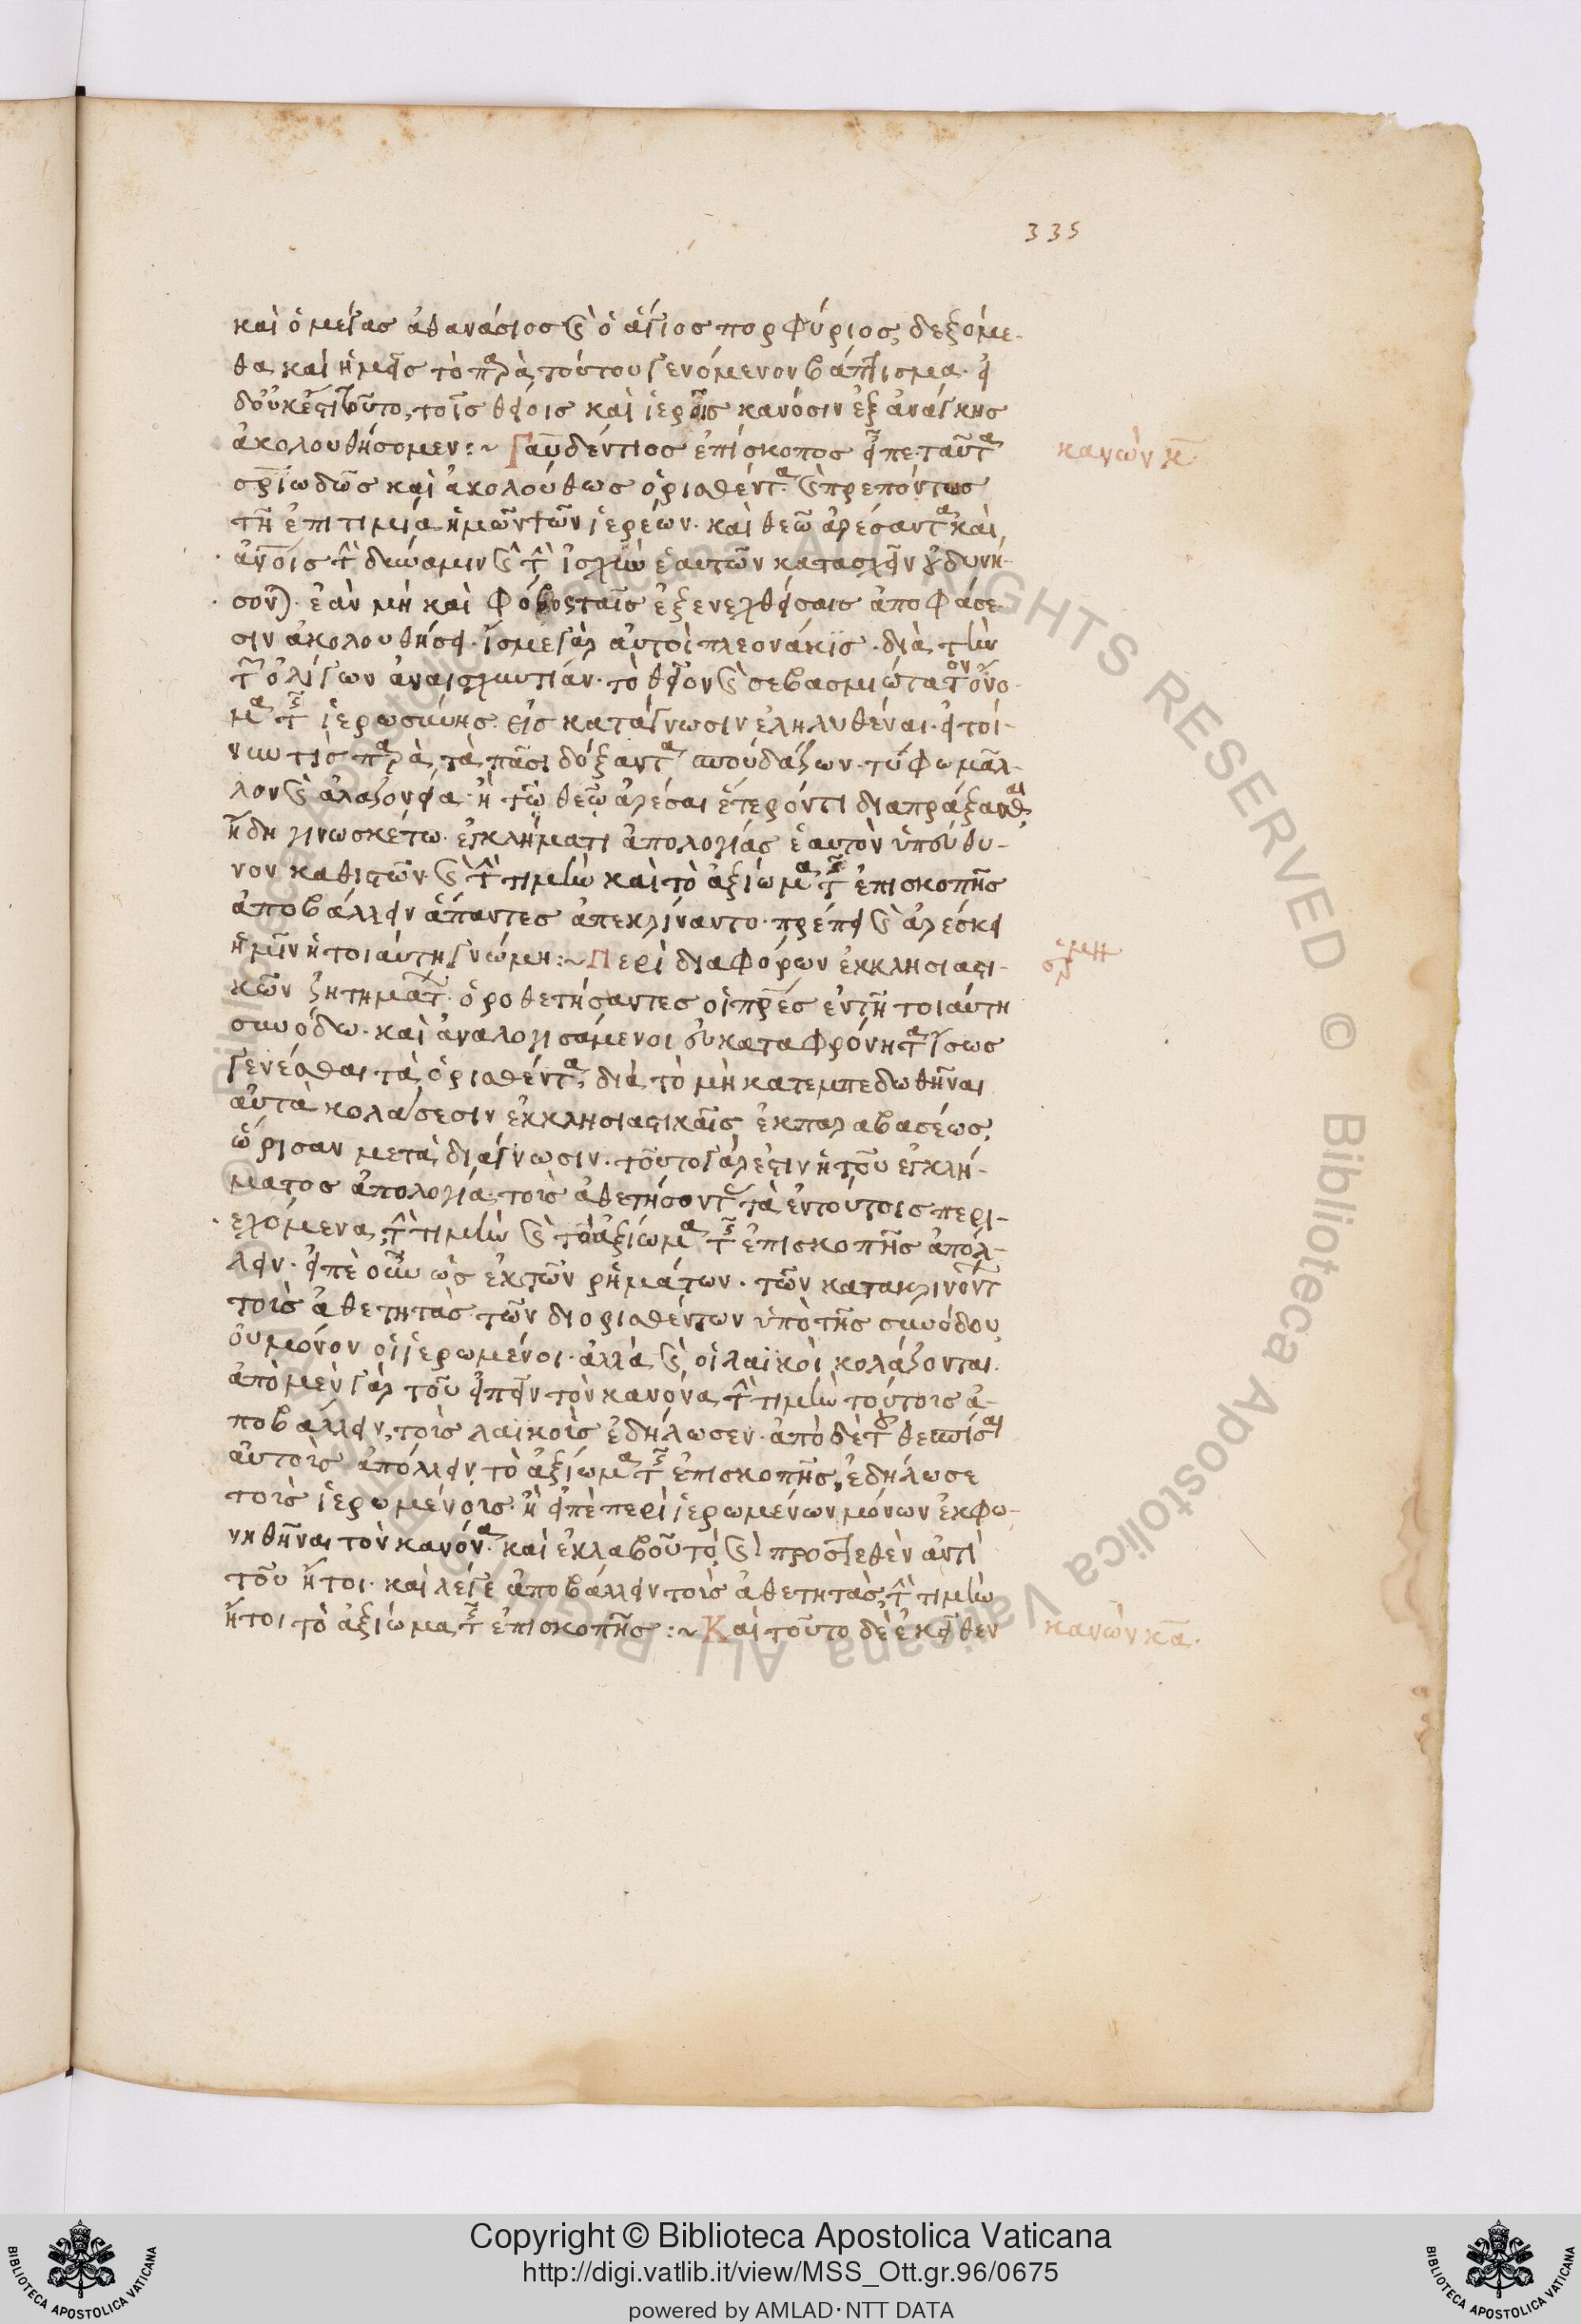 335
καὶ ὁ μέγας ἀθανάσιος καὶ ὁ ἅγιος πορφύριος, δεξόμε-
θα καὶ ἡμεῖς τὸ παρὰ τούτου γενόμενον βάπτισμα· εἰ
δ' οὐκ ἔστι τοῦτο, τοῖς θείοις καὶ ἱεροῖς κανόσιν ἐξ ἀνάγκης
ἀκολουθήσομεν :~ Γαυδέντιος ἐπίσκοπος εἶπε· ταῦτα
σριωδῶς καὶ ἀκολούθως ὁρισθέντα· καὶ πρεπόντως
τῆ ἐπιτιμία ἡμῶν τῶν ἱερέων· καὶ θεῶ ἀρέσαντα καὶ
ἀνοις τὴν δύναμιν καὶ τὴν ἰσχὺν ἑαυτῶν κατασχεῖν οὐ δυνή-
σονται· ἐὰν μὴ καὶ φόβος ταῖς ἐξενεχθείσαις ἀποφάσε-
σιν ἀκολουθήσει· ἴσμεν γὰρ αὐτοὶ πλεονάκις· διὰ τὴν
τῶν ὀλίγων ἀναισχυντίαν· τὸ θεῖον καὶ σεβασμιώτατον ὄνο-
μα τῆς ἱερωσύνης εἰς κατάγνωσιν ἐληλυθέναι· εἰ τοί-
νυν τις παρὰ τὰ πᾶσι δόξαντα σπουδάζων· τύφω μᾶλ-
λον καὶ ἀλαζονεία· ἢ τῶ θεῶ ἀρέσαι ἕτερόν τι διαπράξασθαι
ἤδη γινωσκέτω· ἐγκλήματι ἀπολογίας ἑαυτὸν ὑπεύθυ-
νον καθιστῶν· καὶ τὴν τιμὴν καὶ τὸ ἀξίωμα τῆς ἐπισκοπῆς
ἀποβάλλειν ἅπαντες ἀπεκρίναντο· πρέπει καὶ ἀρέσκει
ἡμῖν ἡ τοιαύτη γνώμη :~ Περὶ διαφόρων ἐκκλησιαστι-
κῶν ζητημάτων ὁροθετήσαντες οἱ πρες ἐν τῆ τοιαύτη
συνόδω· καὶ ἀναλογισάμενοι εὐκαταφρόνητα ἴσως
γενέσθαι τὰ ὁρισθέντα, διὰ τὸ μὴ κατεμπεδωθῆναι
αὐτὰ κολάσεσιν ἐκκλησιαστικαῖς ἐκ παραβασέως,
ὥρισαν μετὰ διάγνωσιν· τοῦτο γάρ ἐστιν ἡ τοῦ ἐγκλή-
ματος ἀπολογία· τοὺς ἀθετήσοντας τὰ ἐν τούτοις περι-
εχόμενα, τὴν τιμὴν καὶ τὸ ἀξίωμα τῆς ἐπισκοπῆς ἀπόλ-
λειν· εἶπε οὖν ὡς ἐκ τῶν ῥημάτων· τῶν κατακρινόντων
τοὺς ἀθετητὰς τῶν διορισθέντων ὑπὸ τῆς συνόδου
οὐ μόνον οἱ ἱερωμένοι· ἀλλὰ καὶ οἱ λαϊκοὶ κολάζονται·
ἀπὸ μὲν γὰρ τοῦ εἰπεῖν τὸν κανόνα τὴν τιμὴν τούτους ἀ-
ποβάλλειν, τοὺς λαϊκοὺς ἐδήλωσεν· ἀπὸ δὲ τοῦ θεσπίσαι
αὐτοὺς ἀπόλλειν τὸ ἀξίωμα τῆς ἐπισκοπῆς, ἐδήλωσε
τοὺς ἱερωμένους· ἢ εἰπὲ περὶ ἱερωμένων μόνων ἐκφω-
νηθῆναι τὸν κανόνα· καὶ ἐκλαβοῦ τὸ καὶ προστεθὲν ἀντὶ
τοῦ ἤτοι· καὶ λέγε ἀποβάλλειν τοὺς ἀθετητὰς, τὴν τιμὴν
ἤτοι τὸ ἀξίωμα τῆς ἐπισκοπῆς :~ Καὶ τοῦτο δὲ ἐκεῖθεν
κανὼν κ
κανὼν κα
Copyright © Biblioteca Apostolica Vaticana
http://digi.vatlib.it/view/MSS_Ott.gr.96/0675
powered by AMLAD·NTT DATA